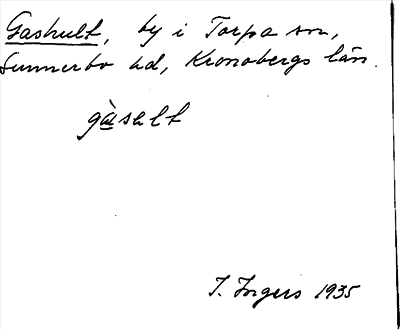 Gashult, by i Torpa sn,
Sunnerbo hd, Kronobergs län.
gàselt
I. Ingers 1935